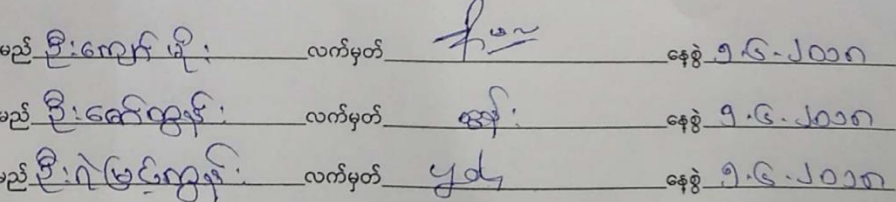 မည် ဦးကျော်မိုး လက်မှတ် နေ့စွဲ ၅.၆.၂၀၁၈
မည် ဦးဇော်ထွန်း လက်မှတ် နေ့စွဲ ၅.၆.၂၀၁၈
မည် ဦးရဲမြင့်ထွန်း လက်မှတ် နေ့စွဲ ၅.၆.၂၀၁၈